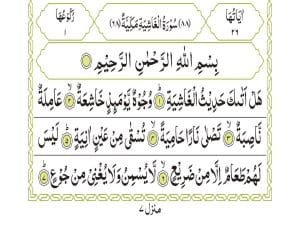 اٰيَاتُهَا ٢٦ (٨٨) سُوْرَةُ الْغَاشِيَةِ مَكِّيَّةٌ (٦٨) رُكُوْعُهَا ١
بِسْمِ اللهِ الرَّحْمٰنِ الرَّحِيْمِ
هَلْ اَتٰىكَ حَدِيْثُ الْغَاشِيَةِ ۝١ وُجُوْهٌ يَّوْمَىِٕذٍ خَاشِعَةٌ ۝٢ عَامِلَةٌ
نَّاصِبَةٌ ۝٣ تَصْلٰى نَارًا حَامِيَةً ۝٤ تُسْقٰى مِنْ عَيْنٍ اٰنِيَةٍ ۝٥ لَيْسَ
لَهُمْ طَعَامٌ اِلَّا مِنْ ضَرِيْعٍ ۝٦ لَّا يُسْمِنُ وَلَا يُغْنِيْ مِنْ جُوْعٍ ۝٧
منزل ٧